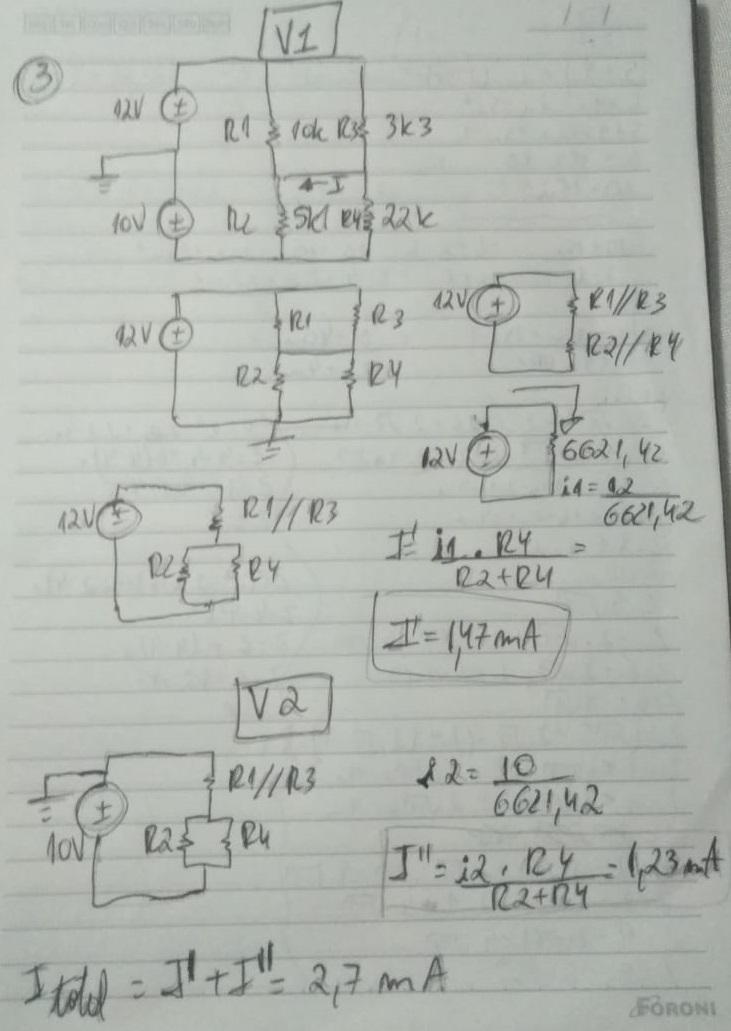 1 1
V1
3
12V ± R1 10k R3 3k3
← I
10V ± R2 5k1 R4 22k
12V ± R1 R3
R2 R4
12V ± R1//R3
R2//R4
12V ± 6621,42
i1 = 12
6621,42
12V ± R1//R3
R2 R4
I' = i1 . R4 =
R2+R4
I' = 1,47mA
V2
R1//R3
10V ± R2 R4
i2 = 10
6621,42
I'' = i2 . R4 = 1,23mA
R2+R4
I total = I' + I'' = 2,7 mA
FORONI